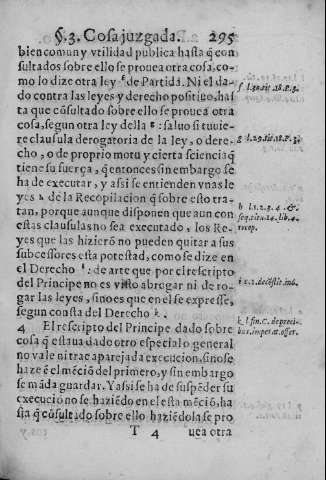 §.3. Cosa juzgada. 295
bien comun y vtilidad publica hasta q̃ con
sultados sobre ello se prouea otra cosa, co-
mo lo dize otra ley f de Partida. Ni el da-
do contra las leyes y derecho positiuo, has
ta que cõsultado sobre ello se prouea otra
cosa, segun otra ley della g: saluo si tuuie-
re clausula derogatoria de la ley, o dere-
cho, o de proprio motu y cierta sciencia q̃
tiene su fuerça, q̃ entonces sin embargo se
ha de executar, y assi se entienden vnas le
yes h de la Recopilacion q̃ sobre esto tra-
tan, porque aunque disponen que aun con
estas clausulas no sea executado, los Re-
yes que las hizierõ no pueden quitar a sus
subcessores esta potestad, como se dize en
el Derecho i: de arte que por el rescripto
del Principe no es visto abrogar ni dero-
gar las leyes, sino es que en el se expresse,
segun consta del Derecho k.
4 El rescripto del Principe dado sobre
cosa q̃ estaua dado otro especial o general
no vale ni trae aparejada execucion, sino se
haze ē mēciõ del primero, y sin embargo
se mãda guardar. Y assi se ha de suspēder su
execucio no se haziēdo en el esta mēciõ, ha
sta q̃ cõsultado sobre ello haziēdola se pro
T 4 uea otra
f l.30.tit.18.p.3.
g l.29.tit.18.p.3.
h l.1.2.3.4. &
seq.titu.14.lib.4.
recop.
k l.fin.C. de preci-
bus imperat.offer.